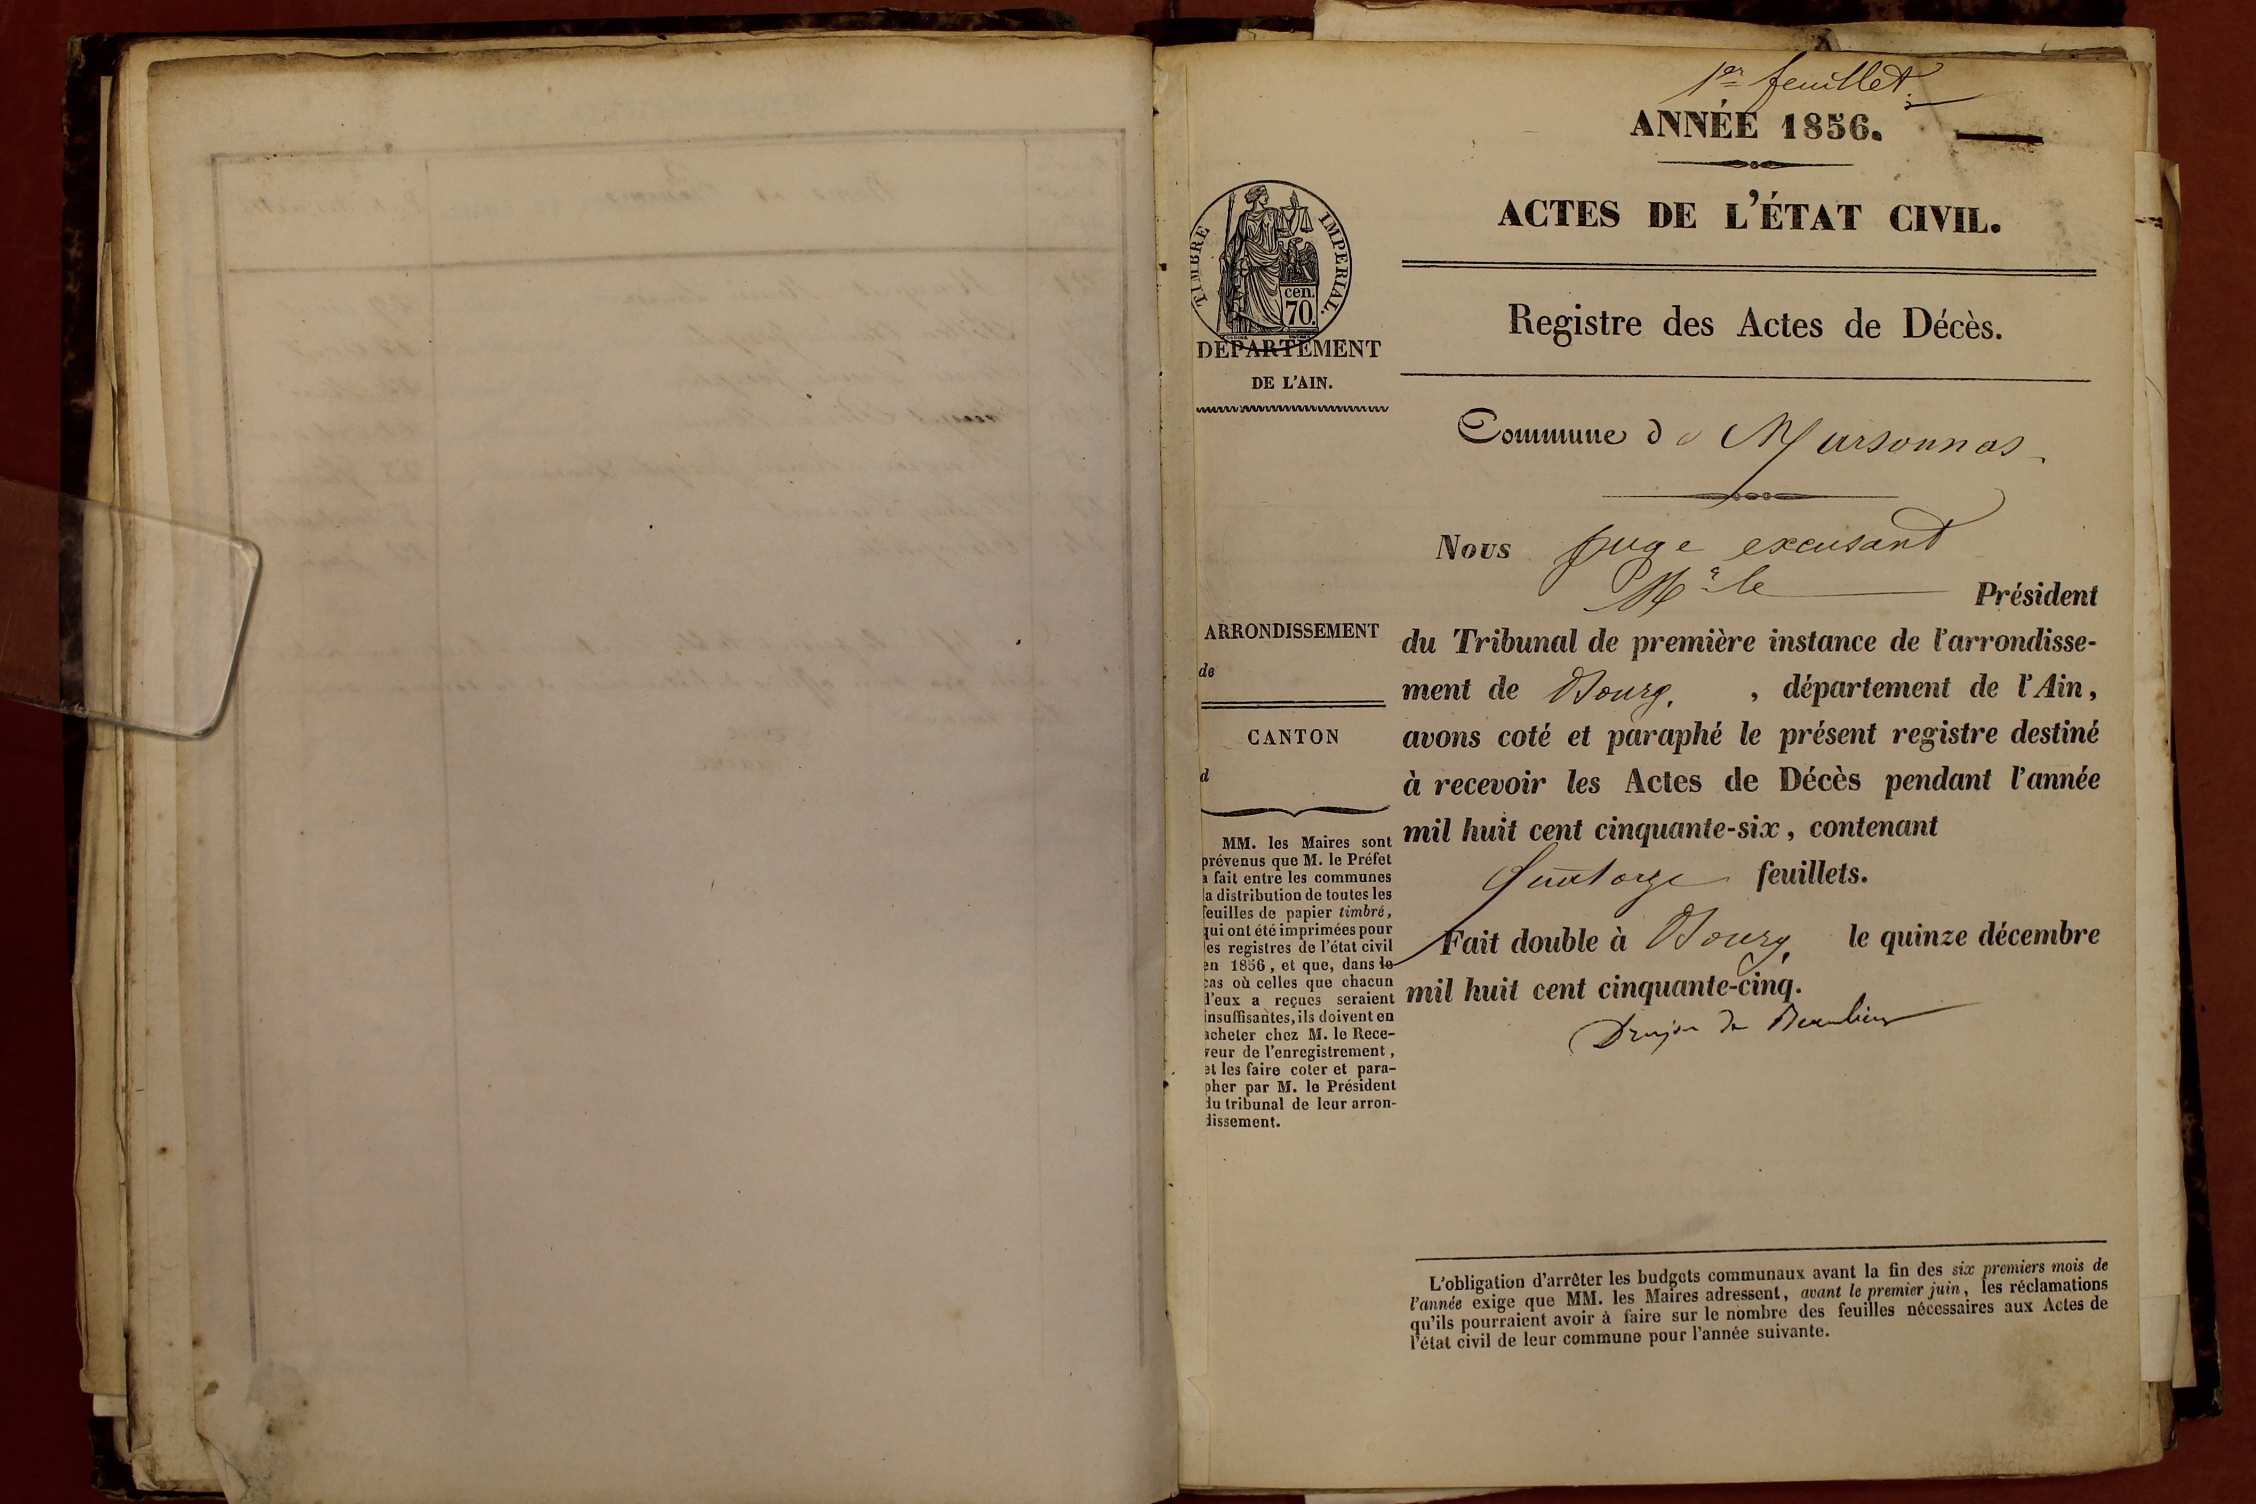 1er feuillet.
ANNÉE 1856.
ACTES DE L'ÉTAT CIVIL.
Registre des Actes de Décès.
TIMBRE IMPERIAL.
cen.
70.
DÉPARTEMENT
DE L'AIN.
Commune de Marsonnas
Nous juge excusant
Mr le Président
du Tribunal de première instance de l'arrondisse-
ment de Bourg, , département de l'Ain,
avons coté et paraphé le présent registre destiné
à recevoir les Actes de Décès pendant l'année
mil huit cent cinquante-six, contenant
quatorze feuillets.
Fait double à Bourg, le quinze décembre
mil huit cent cinquante-cinq.
ARRONDISSEMENT
de
CANTON
d
MM. les Maires sont
prévenus que M. le Préfet
a fait entre les communes
la distribution de toutes les
feuilles de papier timbré,
qui ont été imprimées pour
les registres de l'état civil
en 1856, et que, dans le
cas où celles que chacun
d'eux a reçues seraient
insuffisantes, ils doivent en
acheter chez M. le Rece-
veur de l'enregistrement,
et les faire coter et para-
pher par M. le Président
du tribunal de leur arron-
dissement.
L'obligation d'arrêter les budgets communaux avant la fin des six premiers mois de
l'année exige que MM. les Maires adressent, avant le premier juin, les réclamations
qu'ils pourraient avoir à faire sur le nombre des feuilles nécessaires aux Actes de
l'état civil de leur commune pour l'année suivante.